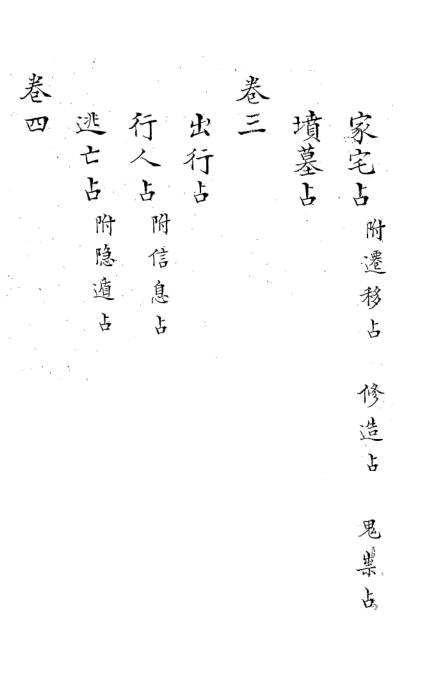 家宅占 附遷移占 修造占 鬼祟占
墳墓占
卷三
出行占
行人占 附信息占
逃亡占 附隐遁占
卷四